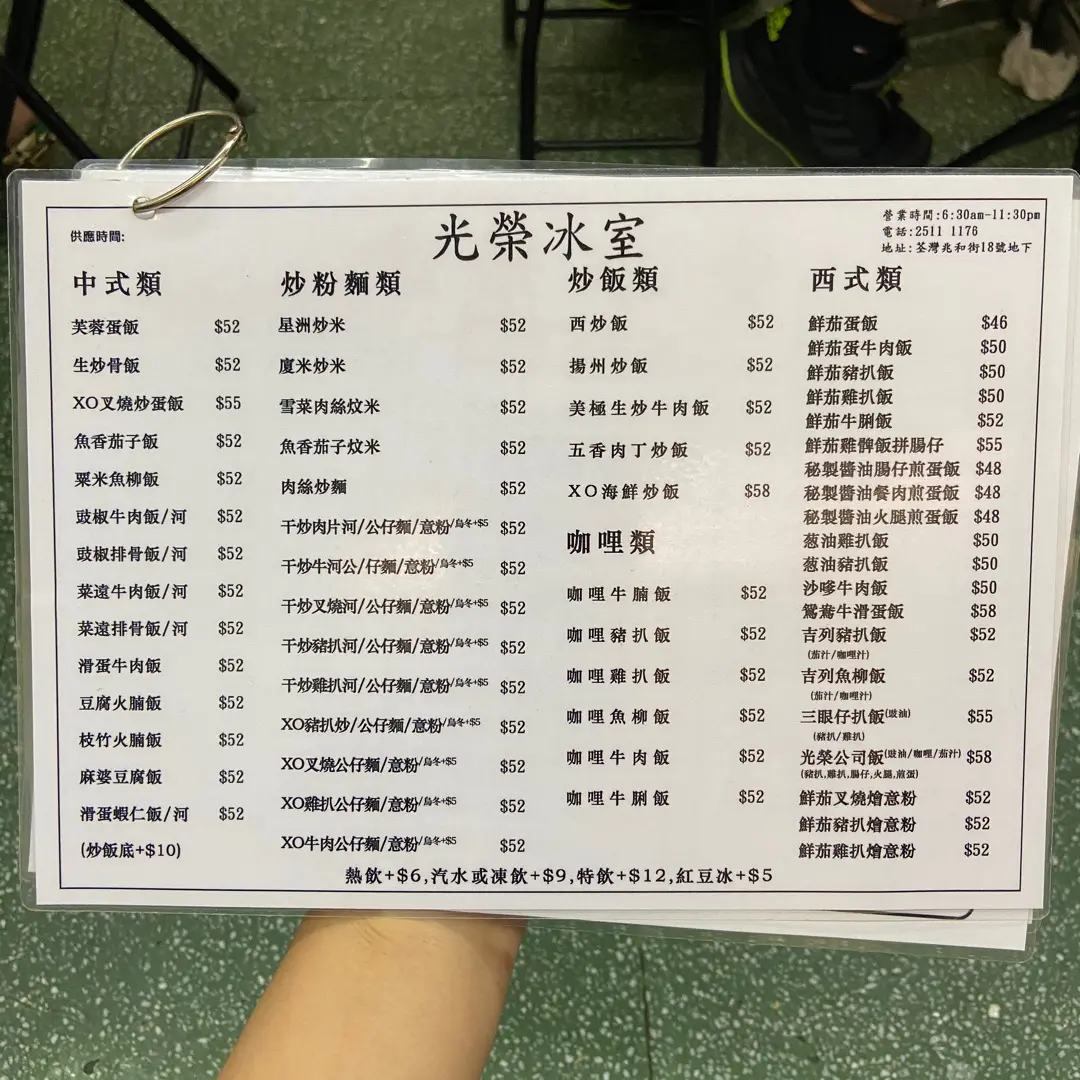 光榮冰室
營業時間:6:30am-11:30pm
電話:2511 1176
地址:荃灣兆和街18號地下
供應時間:
中式類
芙蓉蛋飯 $52
生炒骨飯 $52
XO叉燒炒蛋飯 $55
魚香茄子飯 $52
粟米魚柳飯 $52
豉椒牛肉飯/河 $52
豉椒排骨飯/河 $52
菜遠牛肉飯/河 $52
菜遠排骨飯/河 $52
滑蛋牛肉飯 $52
豆腐火腩飯 $52
枝竹火腩飯 $52
麻婆豆腐飯 $52
滑蛋蝦仁飯/河 $52
(炒飯底+$10)
炒粉麵類
星洲炒米 $52
廈米炒米 $52
雪菜肉絲炆米 $52
魚香茄子炆米 $52
肉絲炒麵 $52
干炒肉片河/公仔麵/意粉/烏冬+$5 $52
干炒牛河公/仔麵/意粉/烏冬+$5 $52
干炒叉燒河/公仔麵/意粉/烏冬+$5 $52
干炒豬扒河/公仔麵/意粉/烏冬+$5 $52
干炒雞扒河/公仔麵/意粉/烏冬+$5 $52
XO豬扒炒/公仔麵/意粉/烏冬+$5 $52
XO叉燒公仔麵/意粉/烏冬+$5 $52
XO雞扒公仔麵/意粉/烏冬+$5 $52
XO牛肉公仔麵/意粉/烏冬+$5 $52
炒飯類
西炒飯 $52
揚州炒飯 $52
美極生炒牛肉飯 $52
五香肉丁炒飯 $52
XO海鮮炒飯 $58
咖哩類
咖哩牛腩飯 $52
咖哩豬扒飯 $52
咖哩雞扒飯 $52
咖哩魚柳飯 $52
咖哩牛肉飯 $52
咖哩牛脷飯 $52
西式類
鮮茄蛋飯 $46
鮮茄蛋牛肉飯 $50
鮮茄豬扒飯 $50
鮮茄雞扒飯 $50
鮮茄牛脷飯 $52
鮮茄雞髀飯拼腸仔 $55
秘製醬油腸仔煎蛋飯 $48
秘製醬油餐肉煎蛋飯 $48
秘製醬油火腿煎蛋飯 $48
葱油雞扒飯 $50
葱油豬扒飯 $50
沙嗲牛肉飯 $50
鴛鴦牛滑蛋飯 $58
吉列豬扒飯 $52
(茄汁/咖哩汁)
吉列魚柳飯 $52
(茄汁/咖哩汁)
三眼仔扒飯(豉油) $55
(豬扒/雞扒)
光榮公司飯(豉油/咖哩/茄汁) $58
(豬扒,雞扒,腸仔,火腿,煎蛋)
鮮茄叉燒燴意粉 $52
鮮茄豬扒燴意粉 $52
鮮茄雞扒燴意粉 $52
熱飲+$6,汽水或凍飲+$9,特飲+$12,紅豆冰+$5